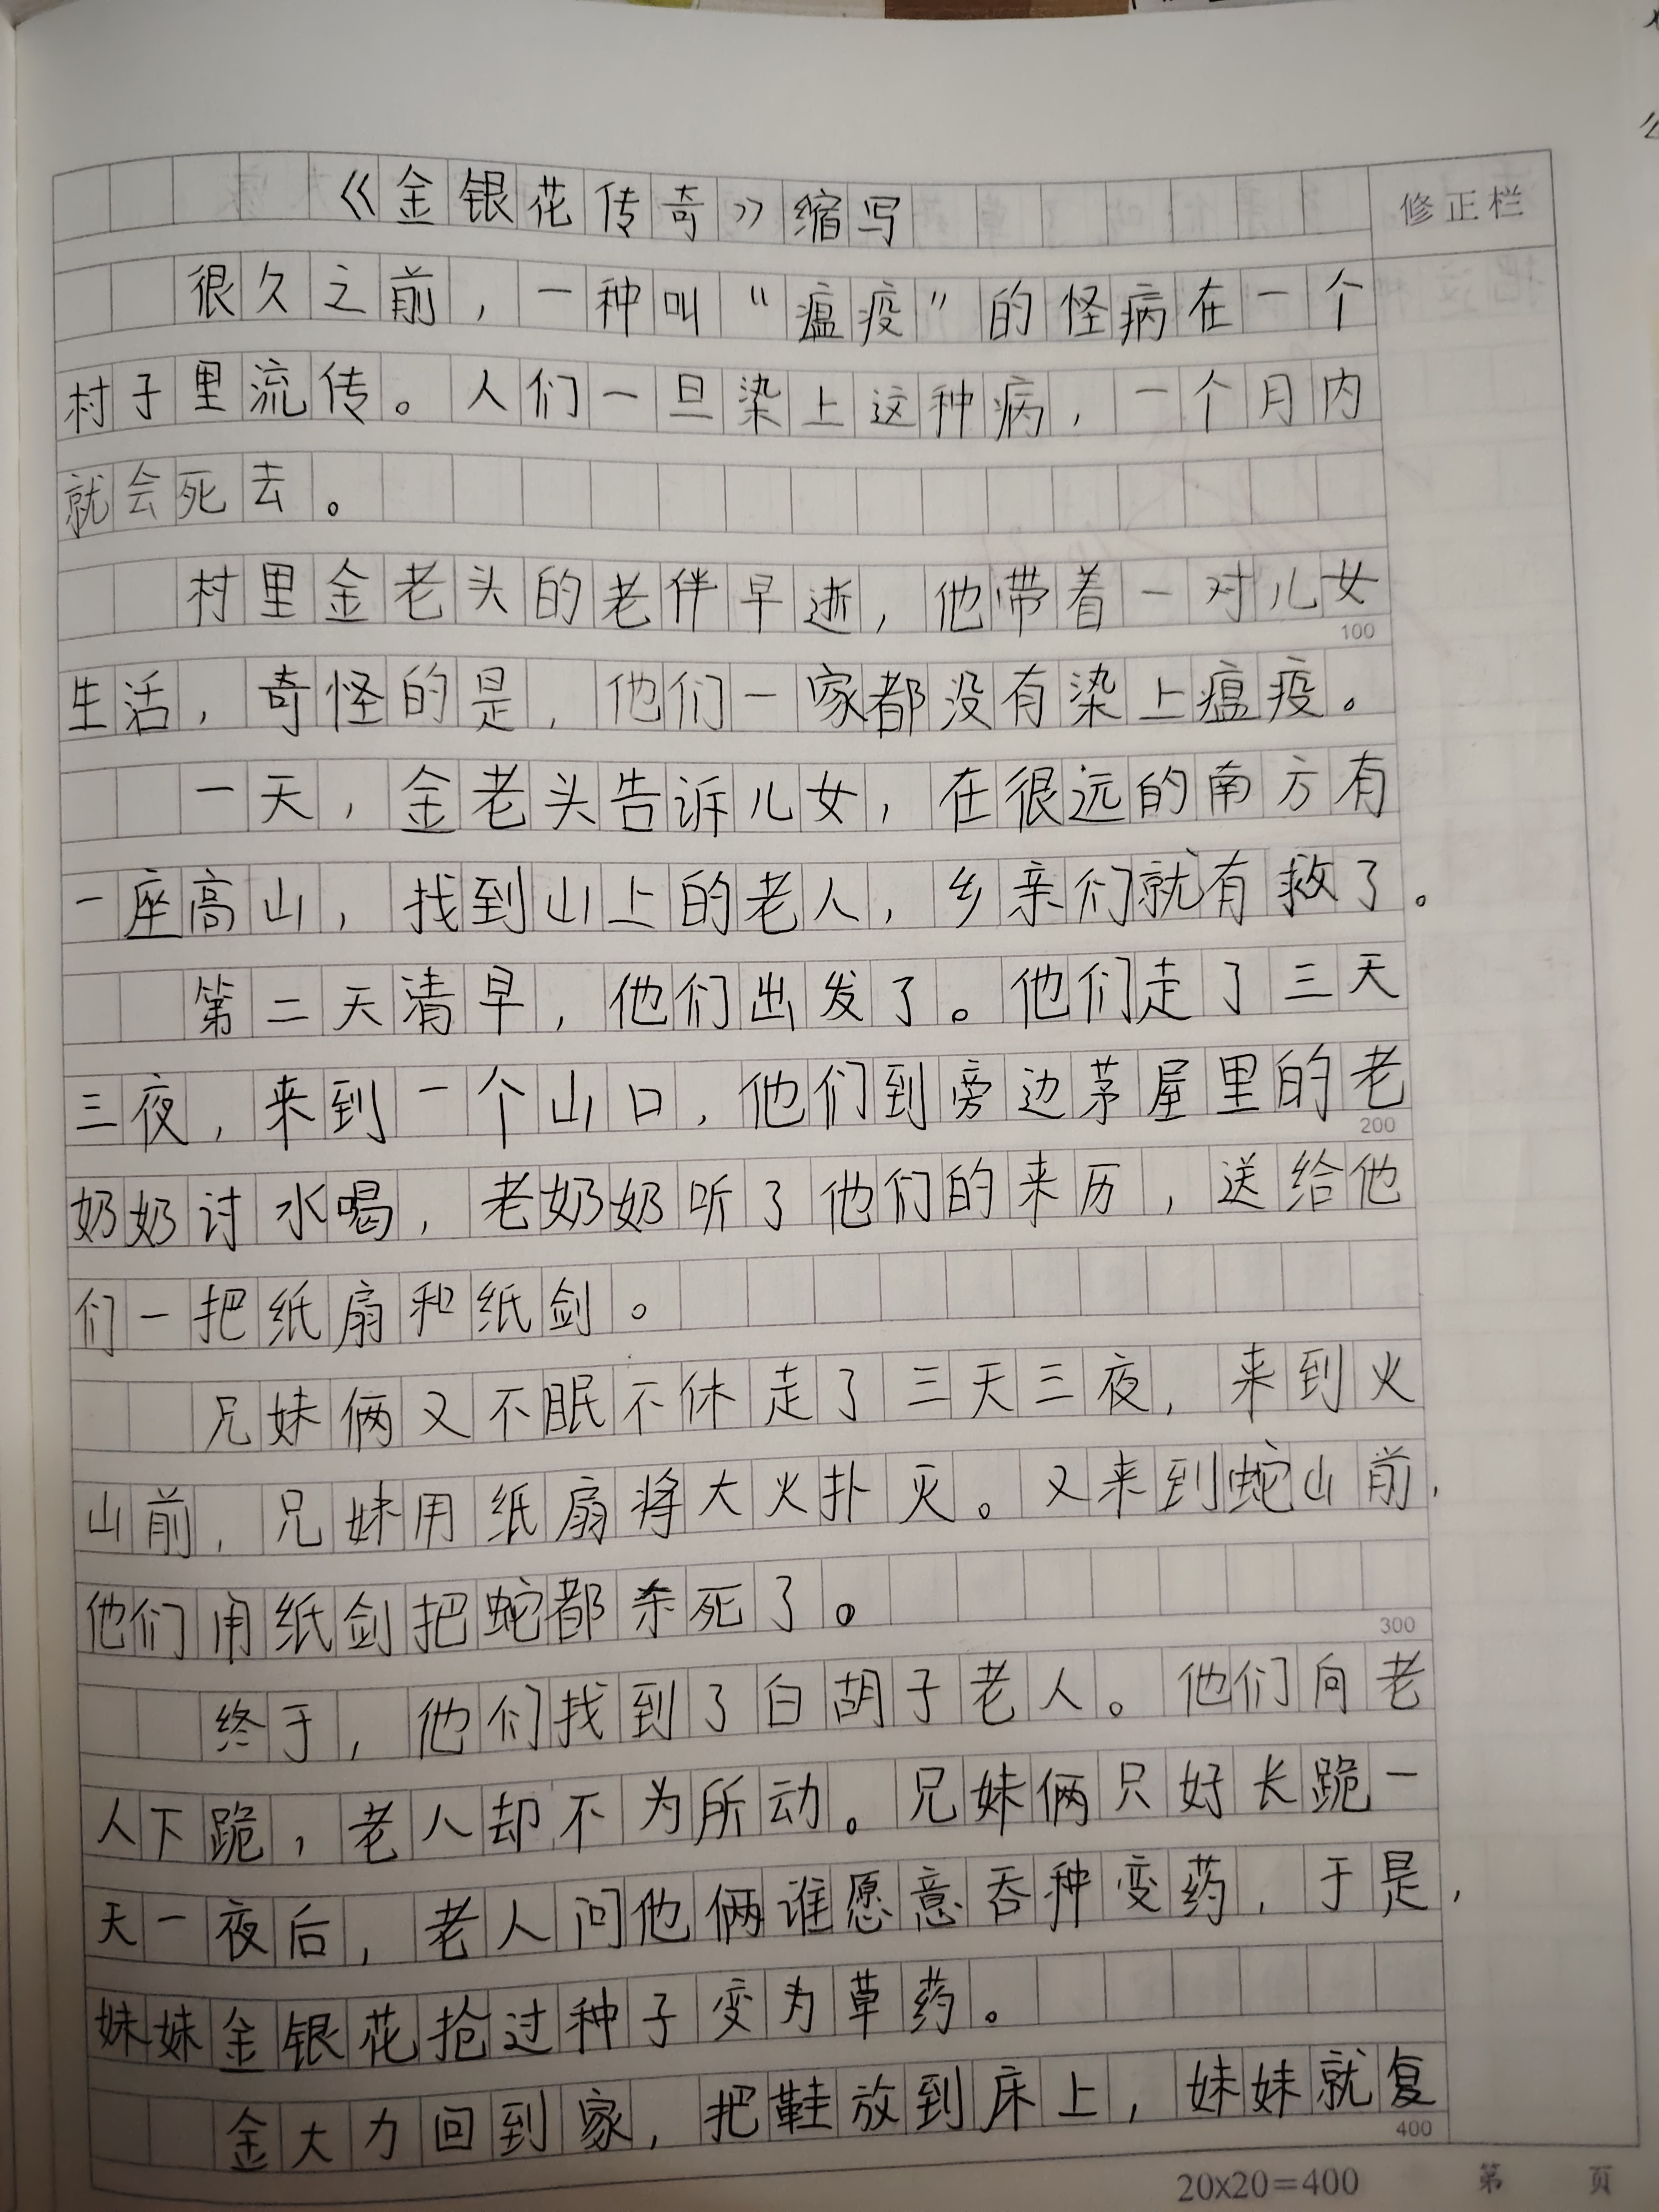 《金银花传奇》缩写
修正栏
很久之前，一种叫“瘟疫”的怪病在一个
村子里流传。人们一旦染上这种病，一个月内
就会死去。
村里金老头的老伴早逝，他带着一对儿女
100
生活，奇怪的是，他们一家都没有染上瘟疫。
一天，金老头告诉儿女，在很远的南方有
一座高山，找到山上的老人，乡亲们就有救了。
第二天清早，他们出发了。他们走了三天
三夜，来到一个山口，他们到旁边茅屋里的老
200
奶奶讨水喝，老奶奶听了他们的来历，送给他
们一把纸扇和纸剑。
兄妹俩又不眠不休走了三天三夜，来到火
山前，兄妹用纸扇将大火扑灭。又来到蛇山前，
他们用纸剑把蛇都杀死了。
300
终于，他们找到了白胡子老人。他们向老
人下跪，老人却不为所动。兄妹俩只好长跪一
天一夜后，老人问他俩谁愿意吞种变药，于是，
妹妹金银花抢过种子变为草药。
金大力回到家，把鞋放到床上，妹妹就复
400
20×20=400 第 页